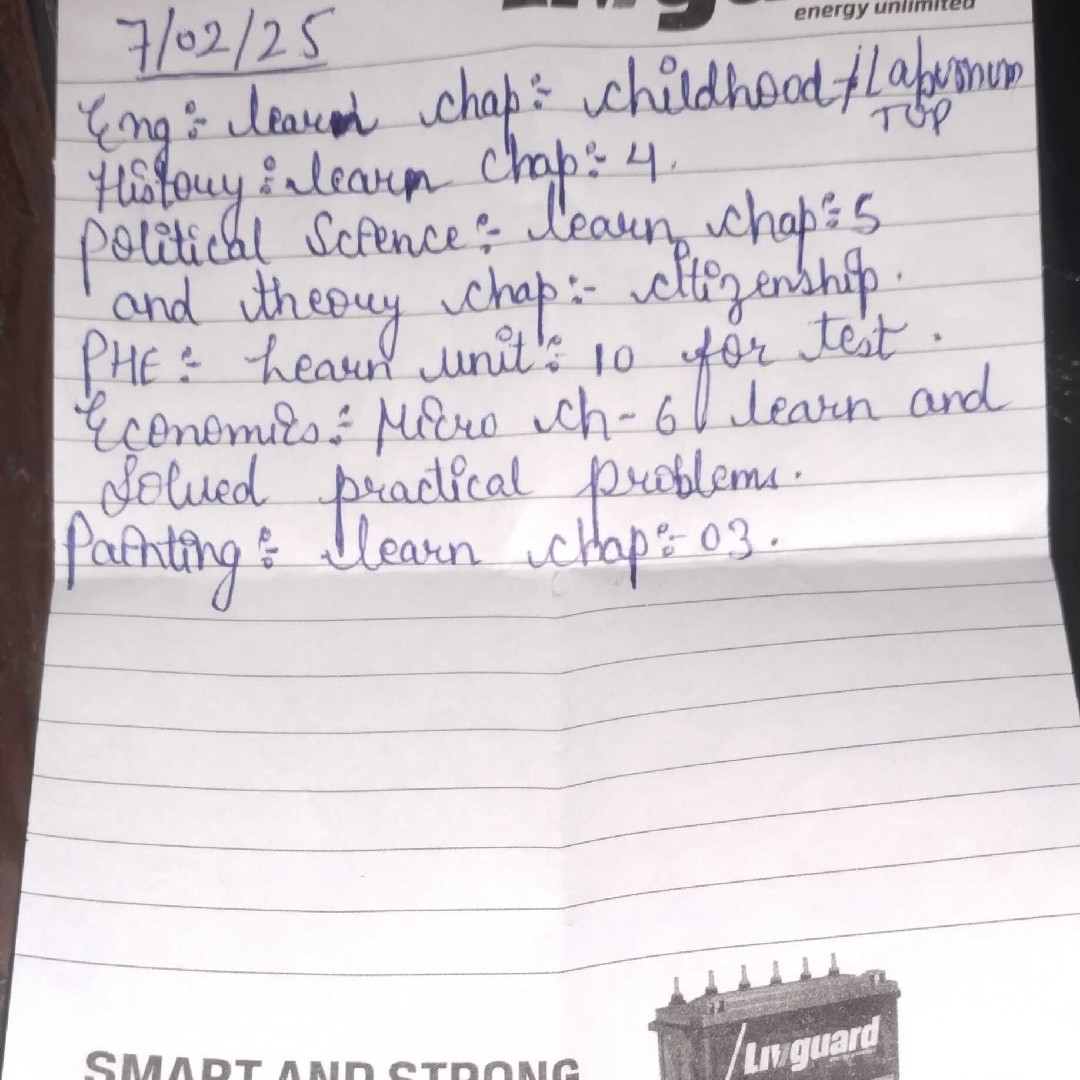 Livguard
energy unlimited
7/02/25
Eng:- learn chap:- childhood / Laburnum
TOP
History:- learn Chap:- 4.
political Science:- learn chap:- 5
and theory chap:- citizenship.
PHE:- learn unit:- 10 for test.
Economics:- Micro ch-6 learn and
Solved practical problems.
Painting:- learn chap:- 03.
Livguard
SMART AND STRONG